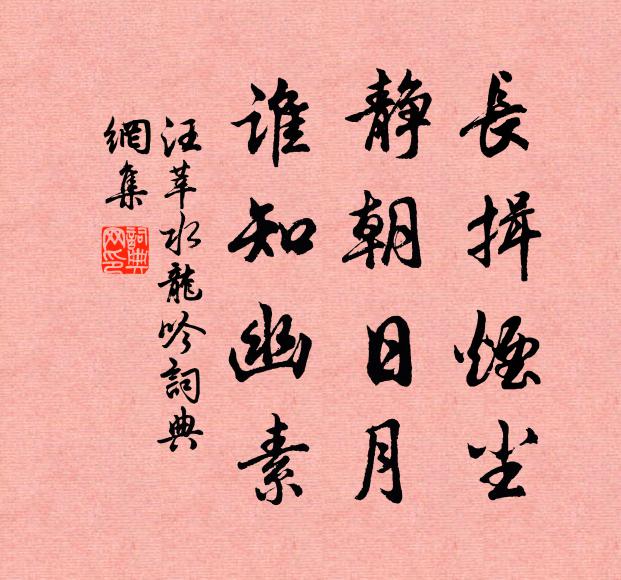 長揖煙尘
静朝日月
誰知幽素
汪莘水龍吟詞典
網集
詞典
网印